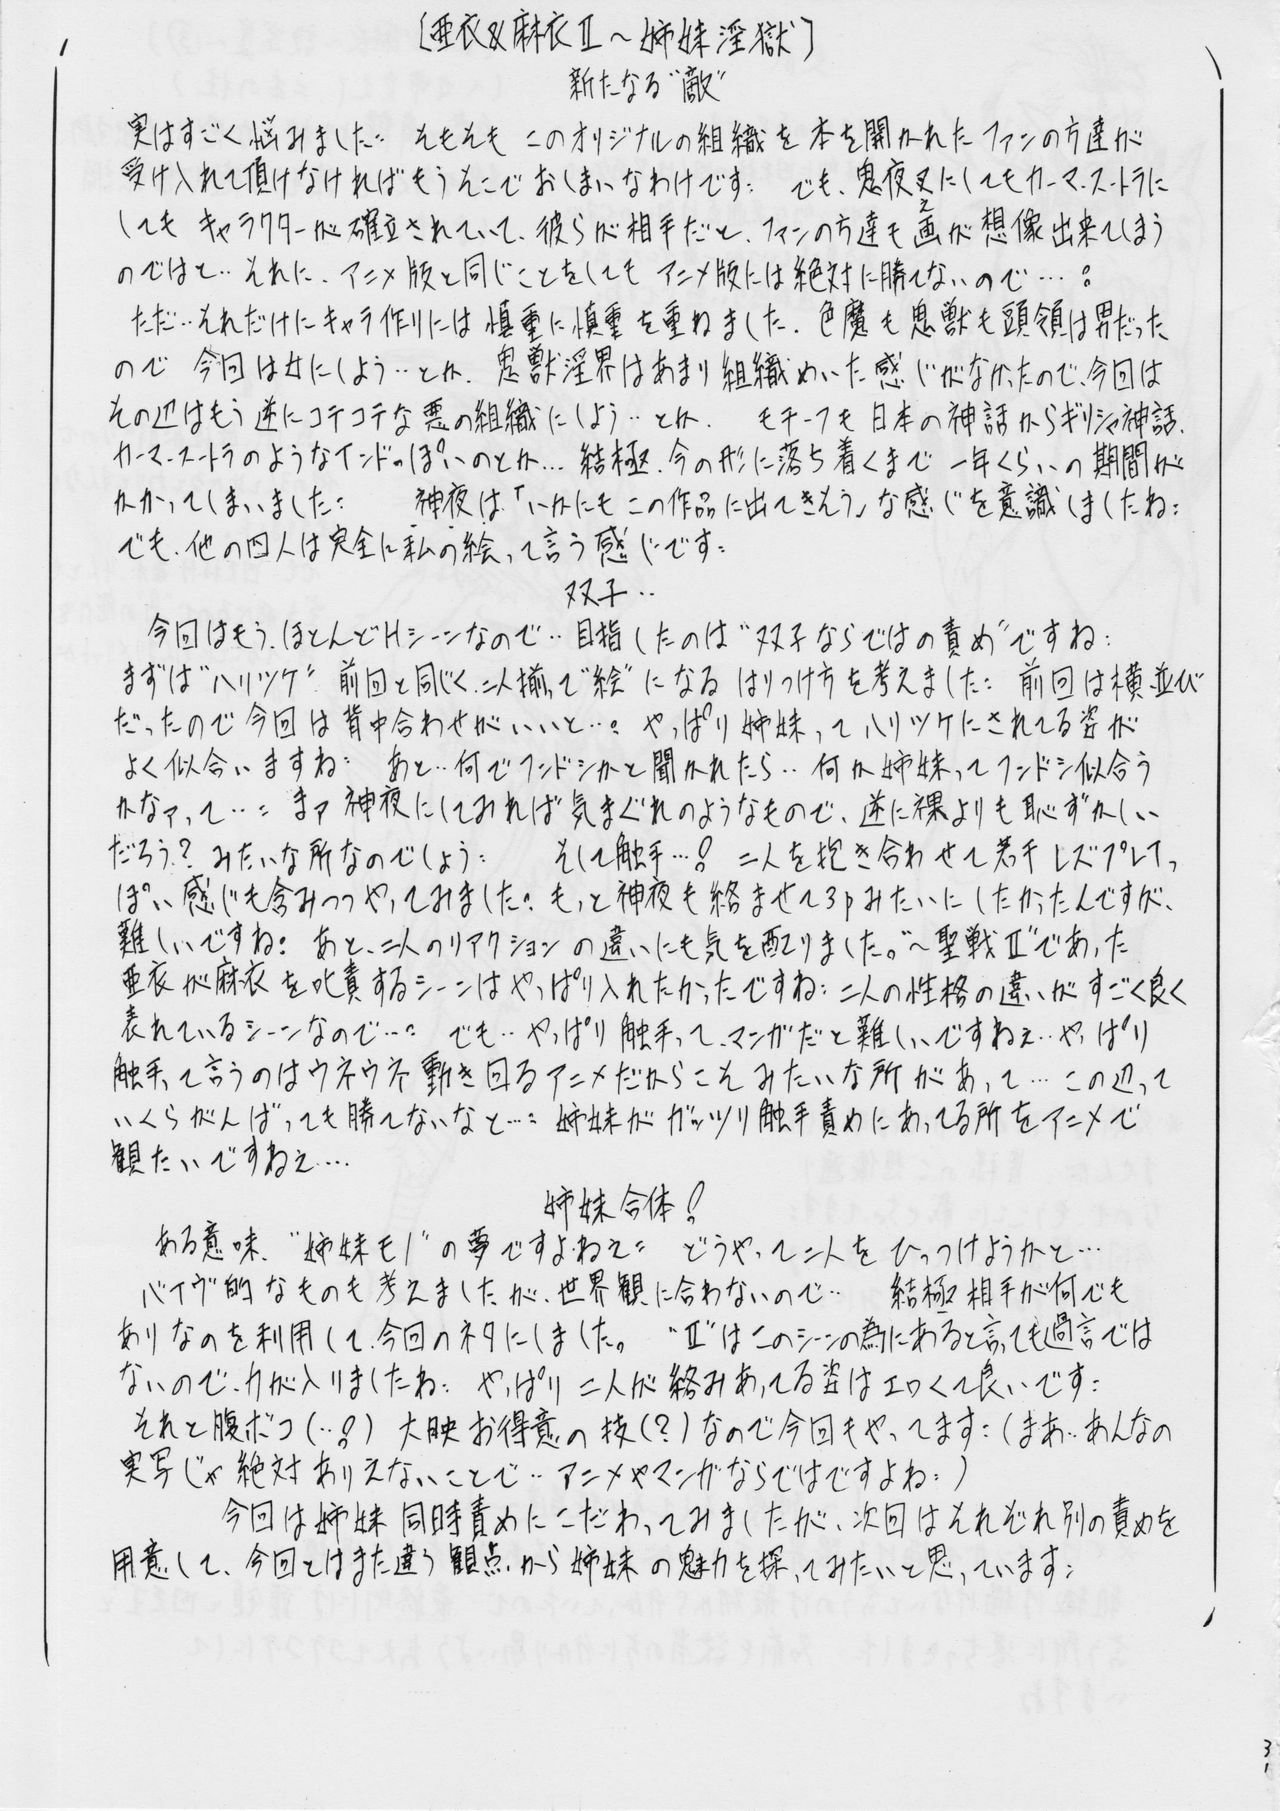 [亜衣&麻衣Ⅱ～姉妹淫獄]
新たなる"敵"
実はすごく悩みました… そもそも このオリジナルの組織を 本を開かれた ファンの方達が
受け入れて頂けなければもうそこで おしまいなわけです… でも、鬼夜叉にしてもカーマ・スートラに
しても キャラクターが確立されていて、彼らが相手だと、ファンの方達も画(え)が想像出来てしまう
のではと‥それに、アニメ版と同じことをしても アニメ版には絶対に勝てないので…。
ただ‥それだけにキャラ作りには慎重に慎重を重ねました、色魔も鬼獣も頭領は男だった
ので 今回は女にしよう‥とか、鬼獣淫界はあまり組織めいた感じがなかったので、今回は
その辺はもう逆にコテコテな悪の組織にしよう‥とか、 モチーフも日本の神話からギリシャ神話、
カーマ・スートラのようなインドっぽいのとか… 結極、今の形に落ち着くまで 一年くらいの期間が
かかってしまいました… 神夜は「いかにも この作品に出てきそう」な感じを意識しましたね…
でも、他の四人は完全に私の絵って言う感じです…
双子‥
今回はもう、ほとんどHシーンなので‥目指したのは"双子ならではの責め"ですね…
まずは"ハリツケ" 前回と同じく、二人揃って"絵"になる はりつけ方を考えました… 前回は横並び
だったので今回は背中合わせがいいと…。 やっぱり姉妹ってハリツケにされてる姿が
よく似合いますね… あと‥何でフンドシかと聞かれたら‥何か姉妹ってフンドシ似合う
かなァって… まァ神夜にしてみれば気まぐれのようなもので、逆に裸よりも恥ずかしい
だろう? みたいな所なのでしょう… そして触手…! 二人を抱き合わせて若干レズプレイっ
ぽい感じも含みつつやってみました。もっと神夜も絡ませて3pみたいにしたかったんですが、
難しいですね。 あと、二人のリアクションの違いにも気を配りました。"～聖戦Ⅱ"であった
亜衣が麻衣を叱責するシーンはやっぱり入れたかったですね…二人の性格の違いがすごく良く
表れているシーンなので… でも‥やっぱり触手って、マンガだと難しいですねぇ‥やっぱり
触手って言うのはウネウネ動き回るアニメだからこそみたいな所があって…この辺って
いくらがんばっても勝てないなと… 姉妹がガッツリ触手責めにあってる所をアニメで
観たいですねぇ…
姉妹合体!
ある意味、"姉妹モノ"の夢ですよねえ… どうやって二人をひっつけようかと…
バイヴ的なものも考えましたが、世界観に合わないので‥ 結極 相手が何でも
ありなのを利用して、今回のネタにしました。 "Ⅱ"はこのシーンの為にあると言っても過言では
ないので、力が入りましたね… やっぱり 二人が絡みあってる姿はエロくて良いです…
それと腹ボコ(‥!) 大映お得意の技(?)なので今回もやってます…(まあ‥あんなの
実写じゃ絶対ありえないことで‥アニメやマンガならではですよね…)
今回は姉妹同時責めにこだわってみましたが、次回はそれぞれ別の責めを
用意して、今回とはまた違う観点から姉妹の魅力を探ってみたいと思っています…
31